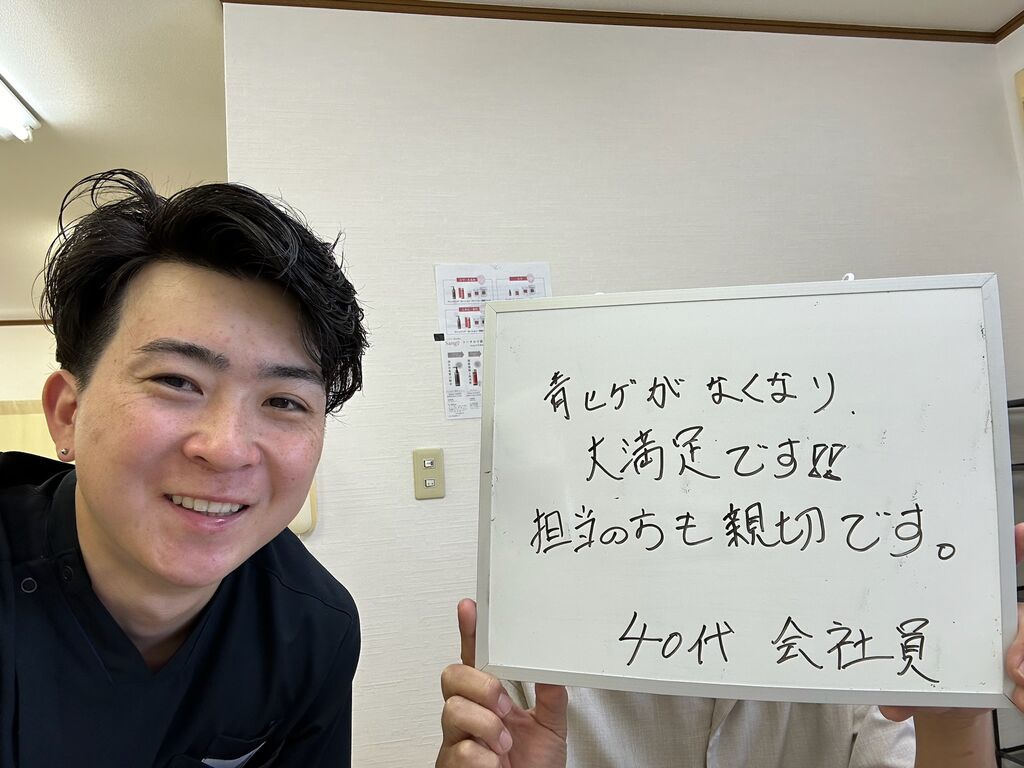 青ヒゲがなくなり、
大満足です!!
担当の方も親切です。
40代 会社員